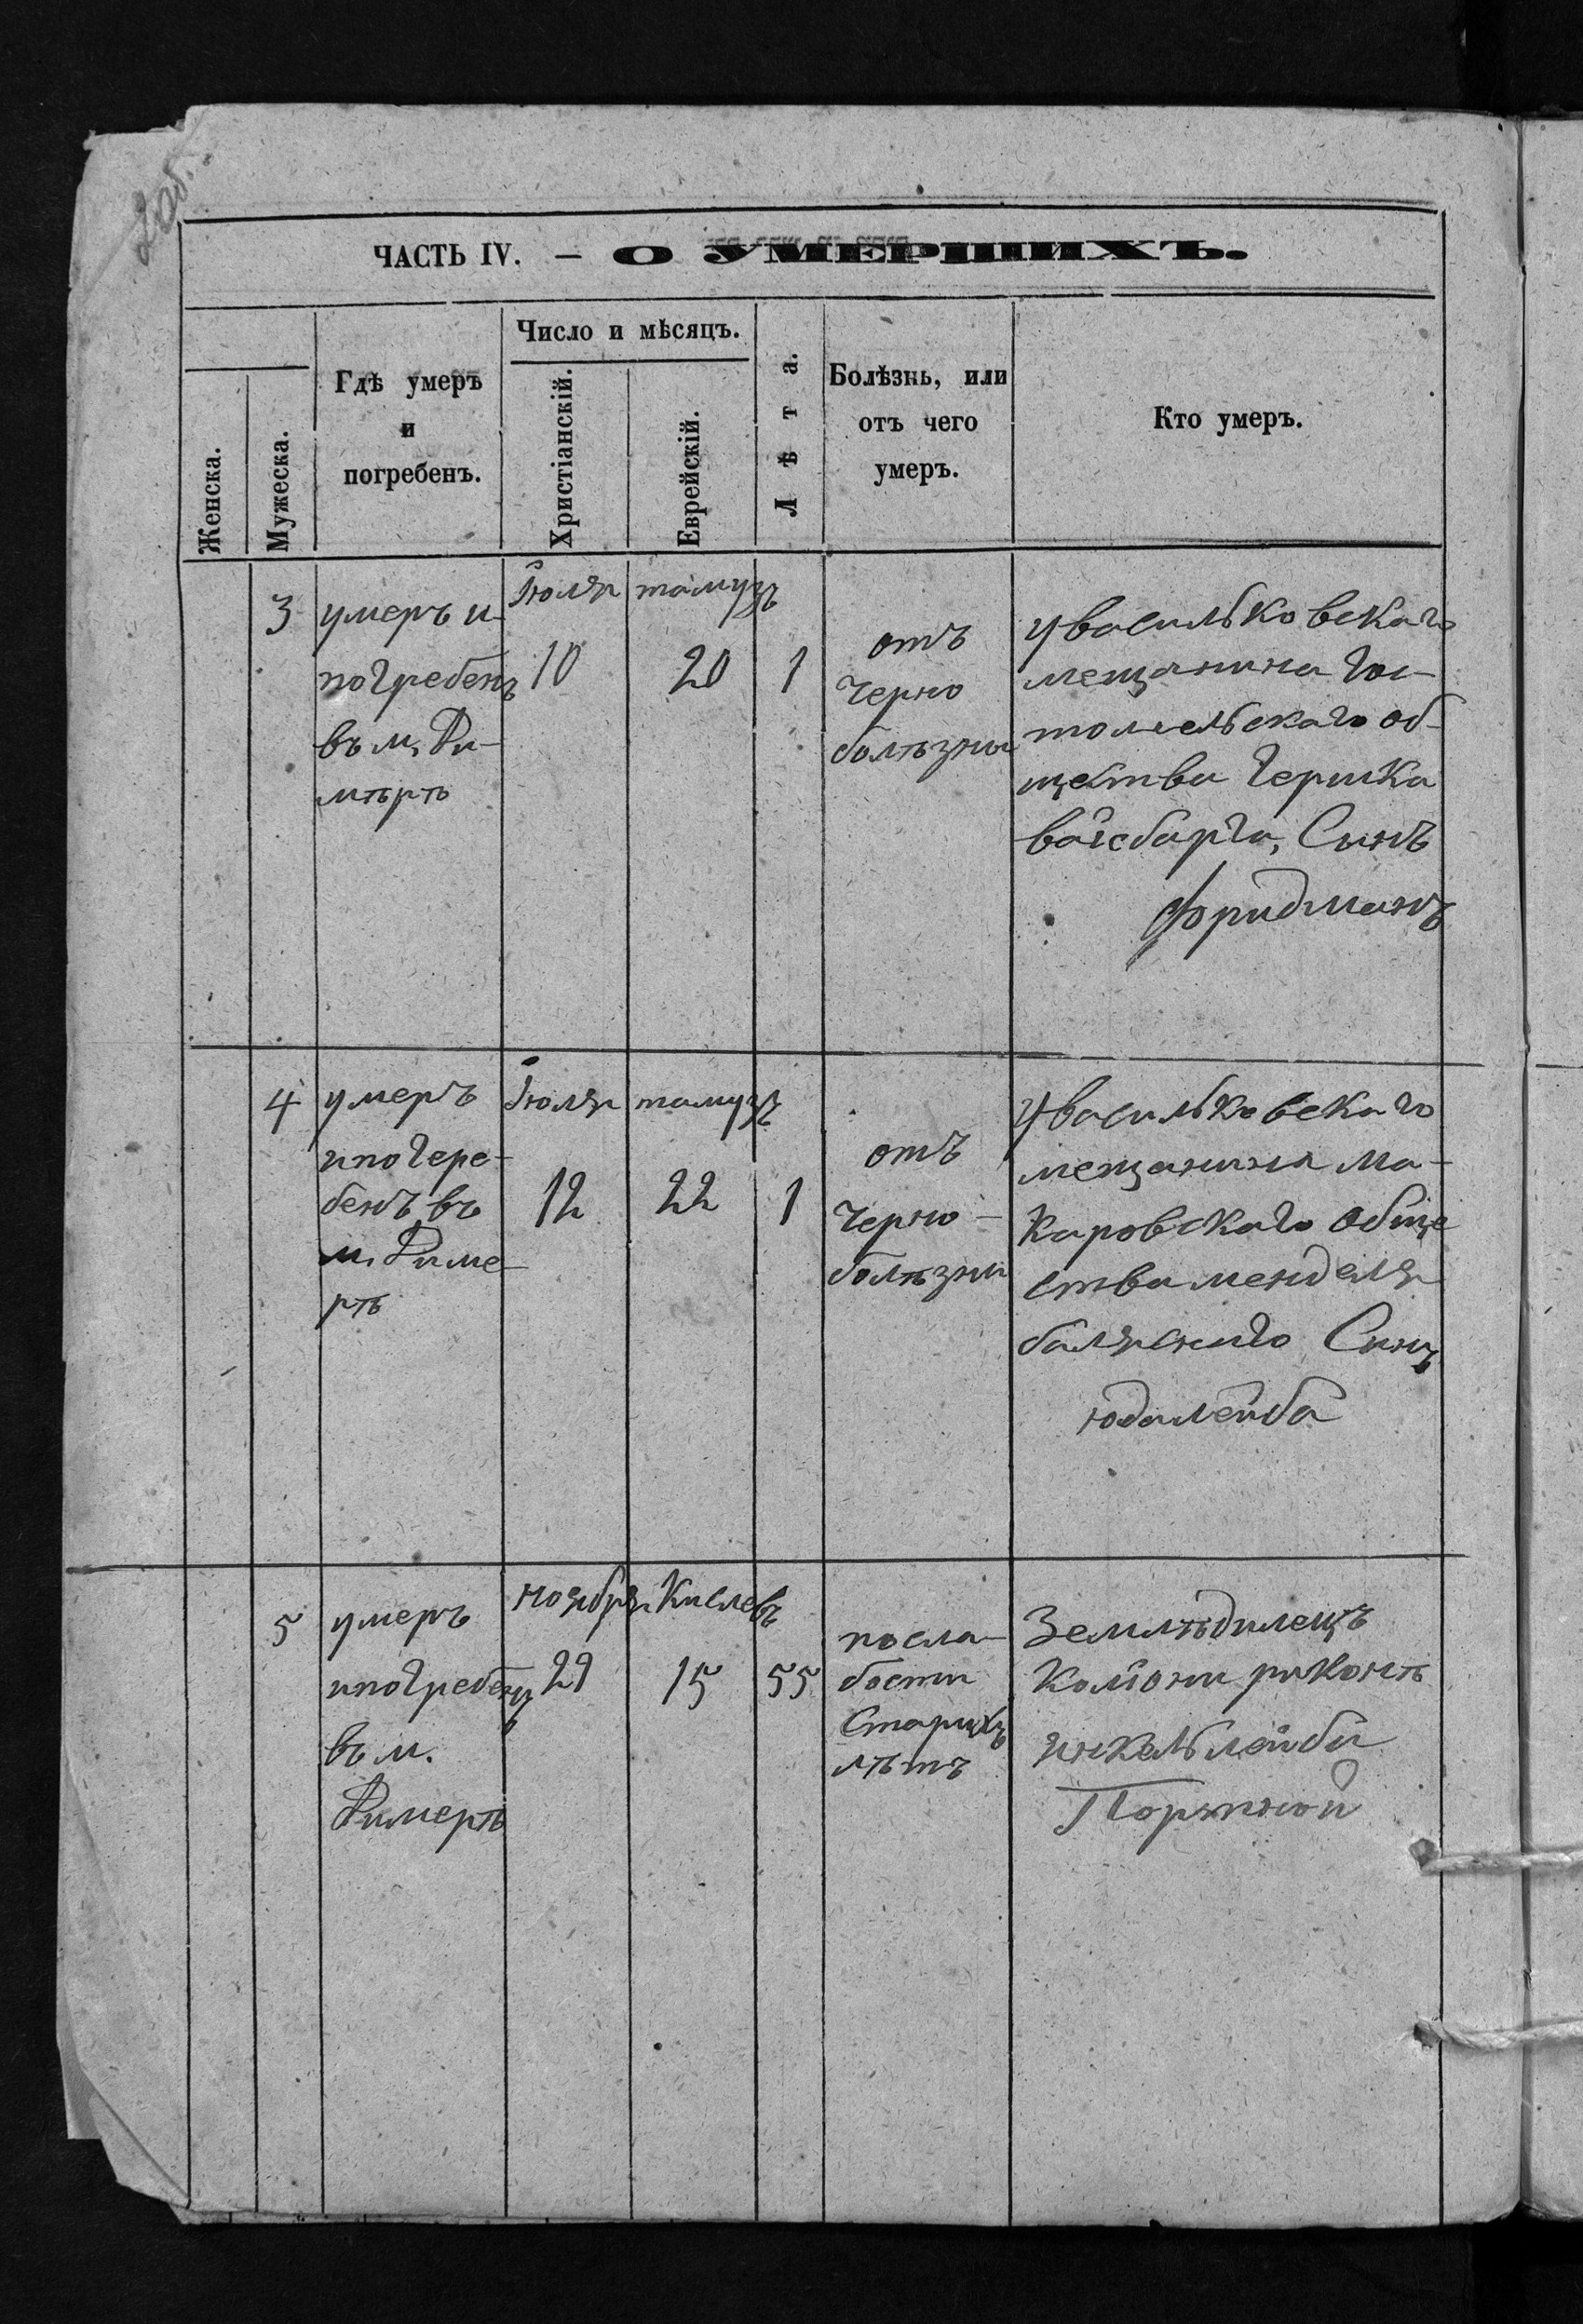 ЧАСТЬ IV. — О УМЕРШИХЪ.
Женска.
Мужеска.
Гдѣ умеръ
и
погребенъ.
Число и мѣсяцъ.
Христіанскій.
Еврейскій.
Лѣта.
Болѣзнь, или
отъ чего
умеръ.
Кто умеръ.
3
умеръ и
погребенъ
въ м. Ди-
мѣрѣ
Іюля
10
тамузъ
20
1
отъ
черно
болѣзни
У васильковскаго
мещанина Гос-
томельскаго об-
щества Гершка
вайсбарга, Сынъ
Фридманъ
4
умеръ
и погере-
бенъ въ
м. Диме-
рѣ
Іюля
12
тамузъ
22
1
отъ
черно-
болѣзни
У васильковскаго
мещанина ма-
каровскаго обще
ства менделя
балясниго Сынъ
юдалейба
5
умеръ
и погребенъ
въ м.
Димерѣ
ноября
29
Кислевъ
15
55
посла-
бости
Старихъ
лѣтъ
Землѣдилецъ
янкель лейби
Портной